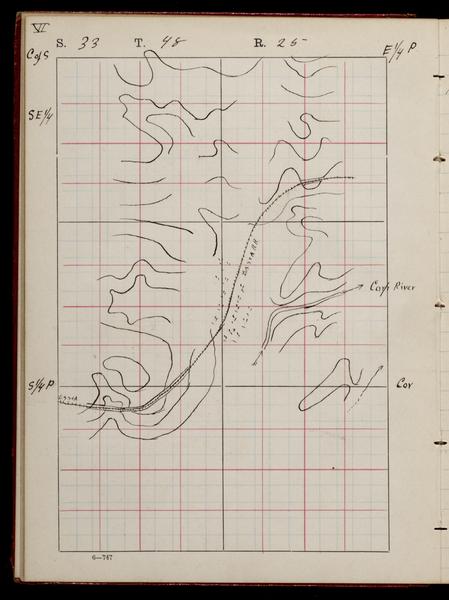 VI
S. 33 T. 48 R. 25
C of S
E 1/4 P
SE 1/4
DSS&A RR
Carp River
S 1/4 P
Cor
DSS&A
6—747